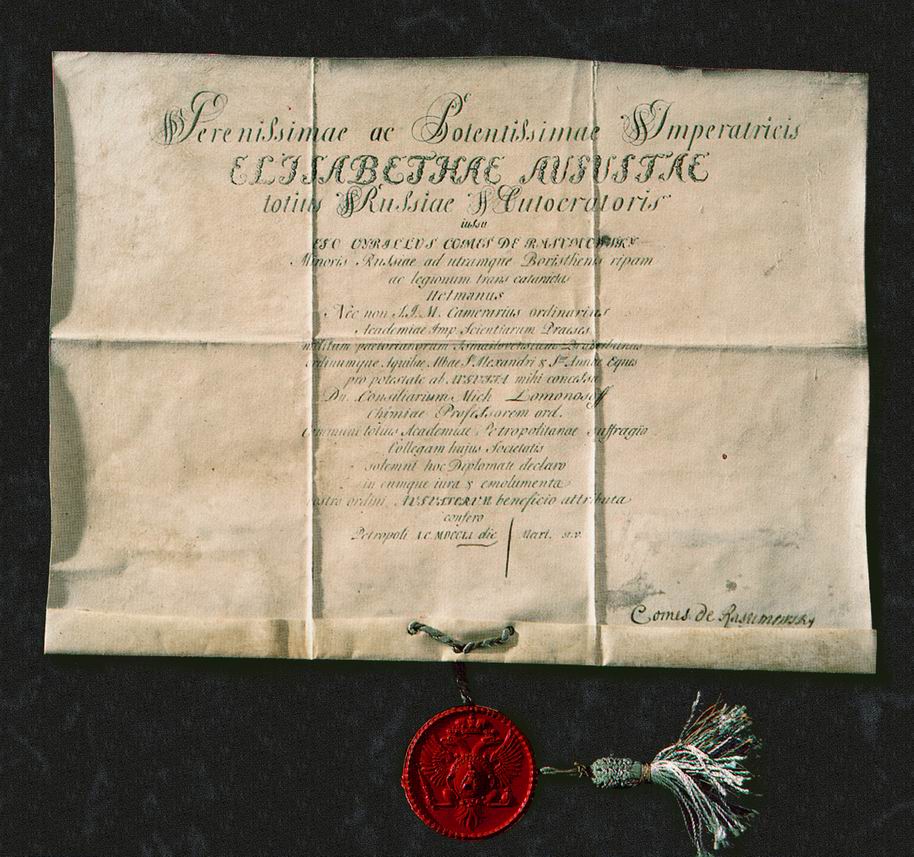 Serenissimae ac Potentissimae Imperatricis
ELISABETHAE AUGUSTAE
totius Russiae Autocratoris
iussu
EGO CYRILLUS COMES DE RASUMOWSKY
Minoris Russiae ad utramque Boristhenis ripam
ac legionum trans cataractas
Hetmanus
Nec non S.I.M. Camerarius ordinarius
Academiae Imp. Scientiarum Praeses
ordinumque Aquilae Albae S. Alexandri & Stae Annae Eques
pro potestate ab AUGUSTA mihi concessa
Dn. Consiliarium Mich. Lomonosoff
Chimiae Professorem ord.
Communi totius Academiae Petropolitanae suffragio
Collegam hujus Societatis
solemni hoc Diplomate declaro
in eumque iura & emolumenta
nostro ordini AUGUSTORUM beneficio attributa
confero
Petropoli A.C. MDCCLI die Mart.
Comes de Rasumowsky